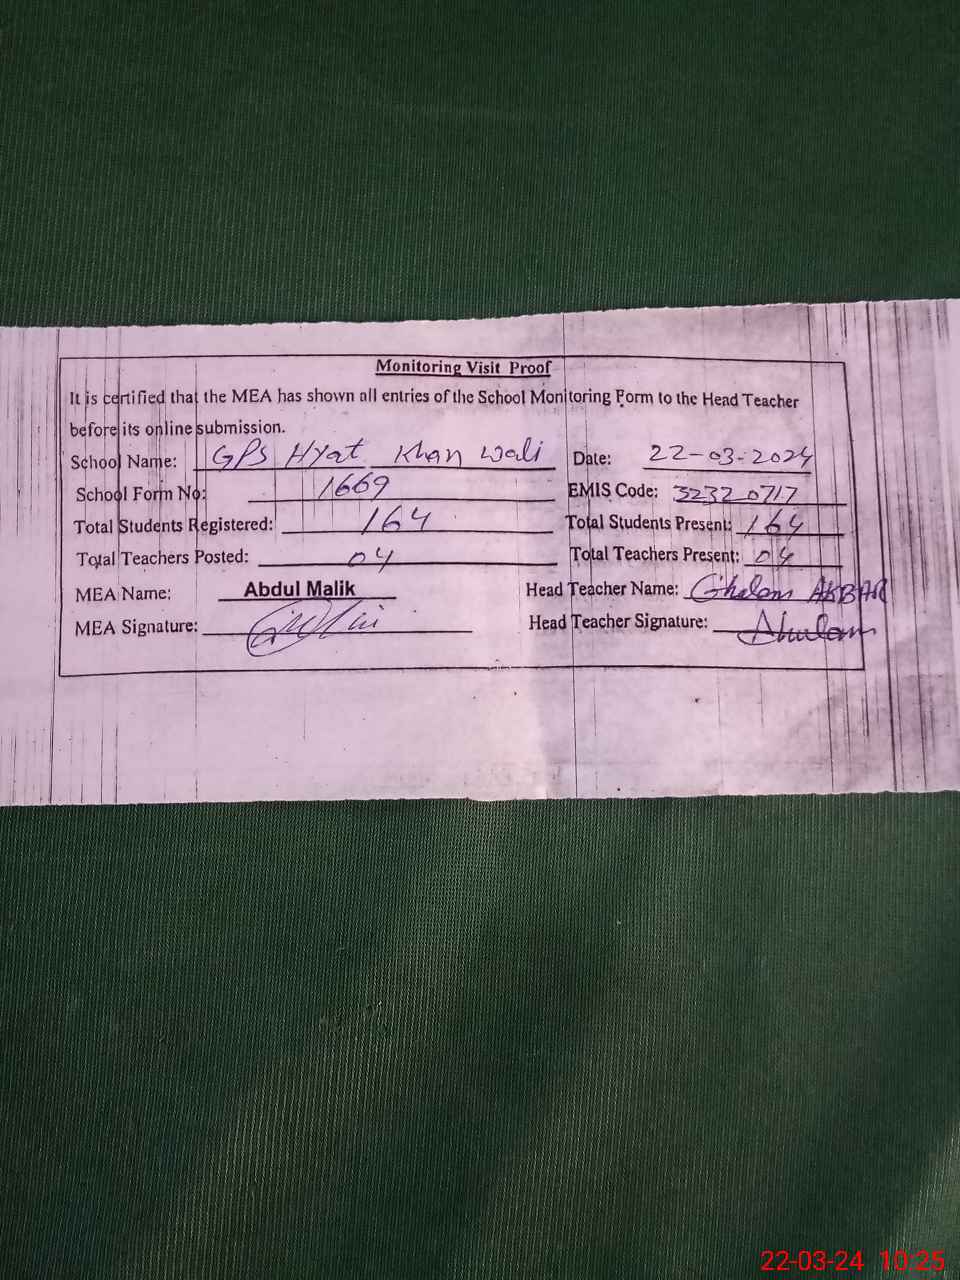 Monitoring Visit Proof
It is certified that the MEA has shown all entries of the School Monitoring Form to the Head Teacher
before its online submission.
School Name: GPS Hyat Khan Wali Date: 22-03-2024
School Form No: 1669 EMIS Code: 32320717
Total Students Registered: 164 Total Students Present: 164
Total Teachers Posted: 04 Total Teachers Present: 04
MEA Name: Abdul Malik Head Teacher Name: Ghulam AKBAR
MEA Signature: Head Teacher Signature: Ghulam
22-03-24 10:25